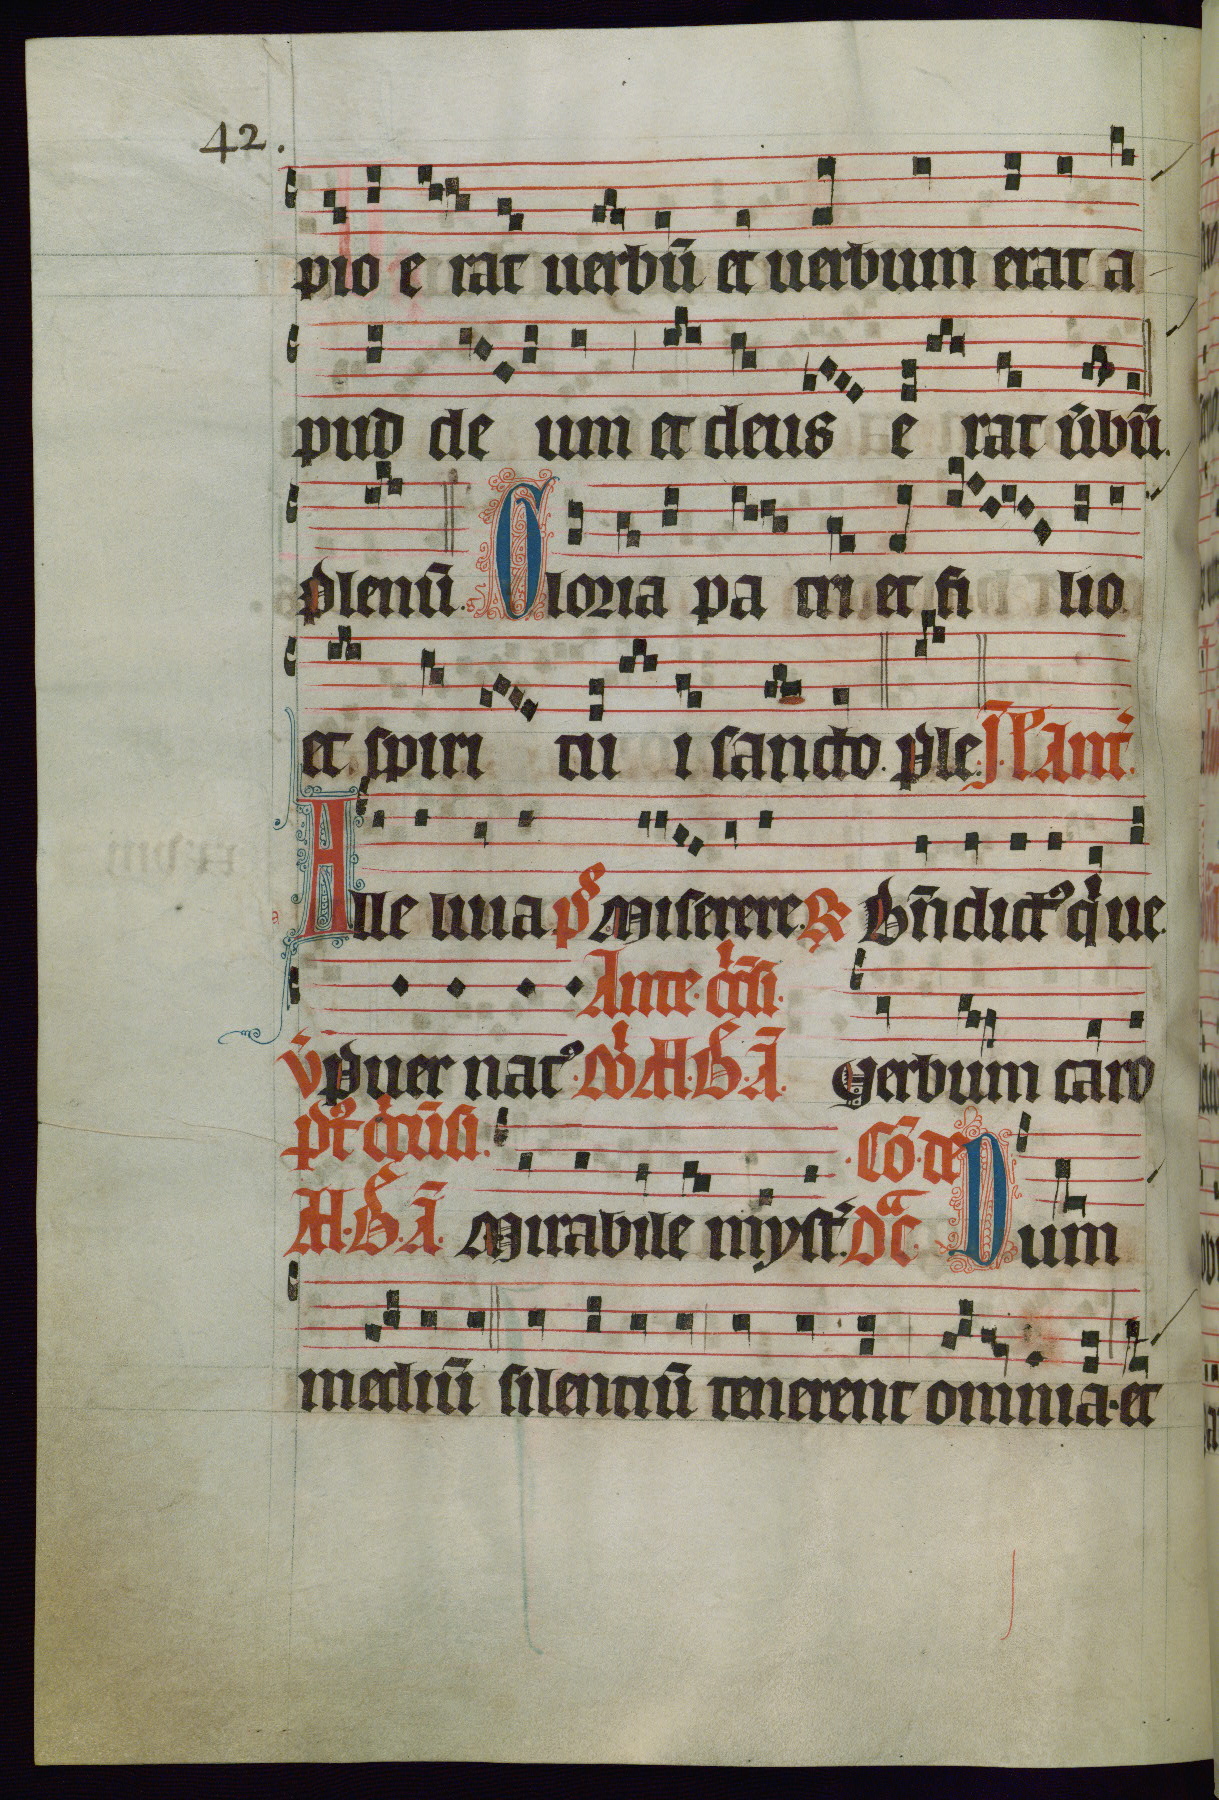 42.
pio e rat uerbū et uerbum erat a
pud de um et deus e rat ūbū.
plenū. Gloria pa tri et fi lio.
et spiri tu i sancto. ple. J. l. Ant.
Alle luia ps Miserere. R Bn̄dictꝰ q ue
Ante
v̄ puer natꝰ M. B. A. Verbum caro
pt
Cō. de
M. B. A. Mirabile myst. Dc̄a Dum
mediū silentiū tenerent omnia. et